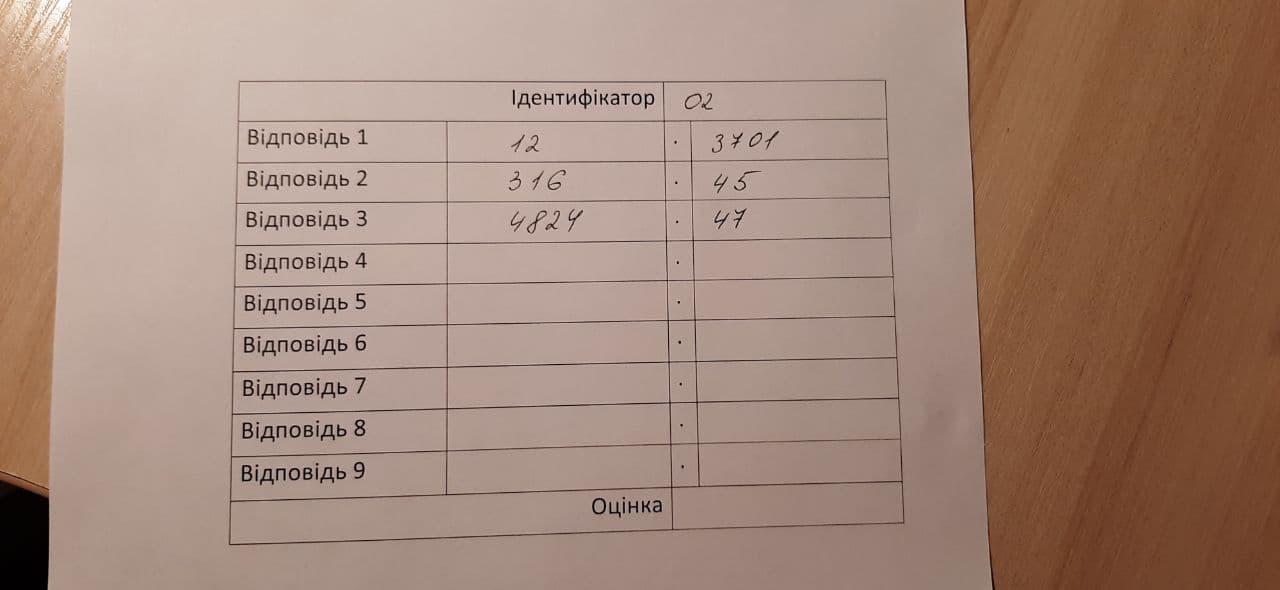 Ідентифікатор 02
Відповідь 1 12 . 3701
Відповідь 2 316 . 45
Відповідь 3 4824 . 47
Відповідь 4 .
Відповідь 5 .
Відповідь 6 .
Відповідь 7 .
Відповідь 8 .
Відповідь 9 .
Оцінка